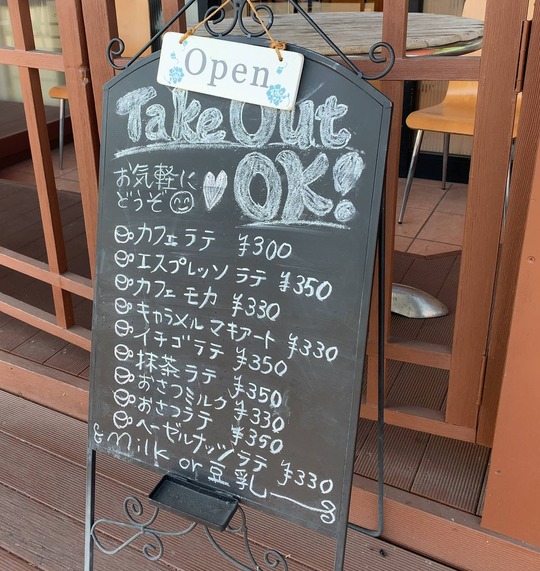 Open
Take Out
お気軽に
どうぞ
OK!
カフェラテ ¥300
エスプレッソ ラテ ¥350
カフェ モカ ¥330
キャラメル マキアート ¥330
イチゴラテ ¥350
抹茶ラテ ¥350
おさつミルク ¥330
おさつラテ ¥350
ヘーゼルナッツラテ ¥330
Milk or 豆乳